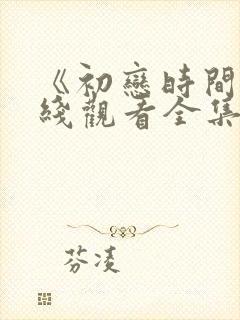 《初戀時間
綫觀看全集
芬凌